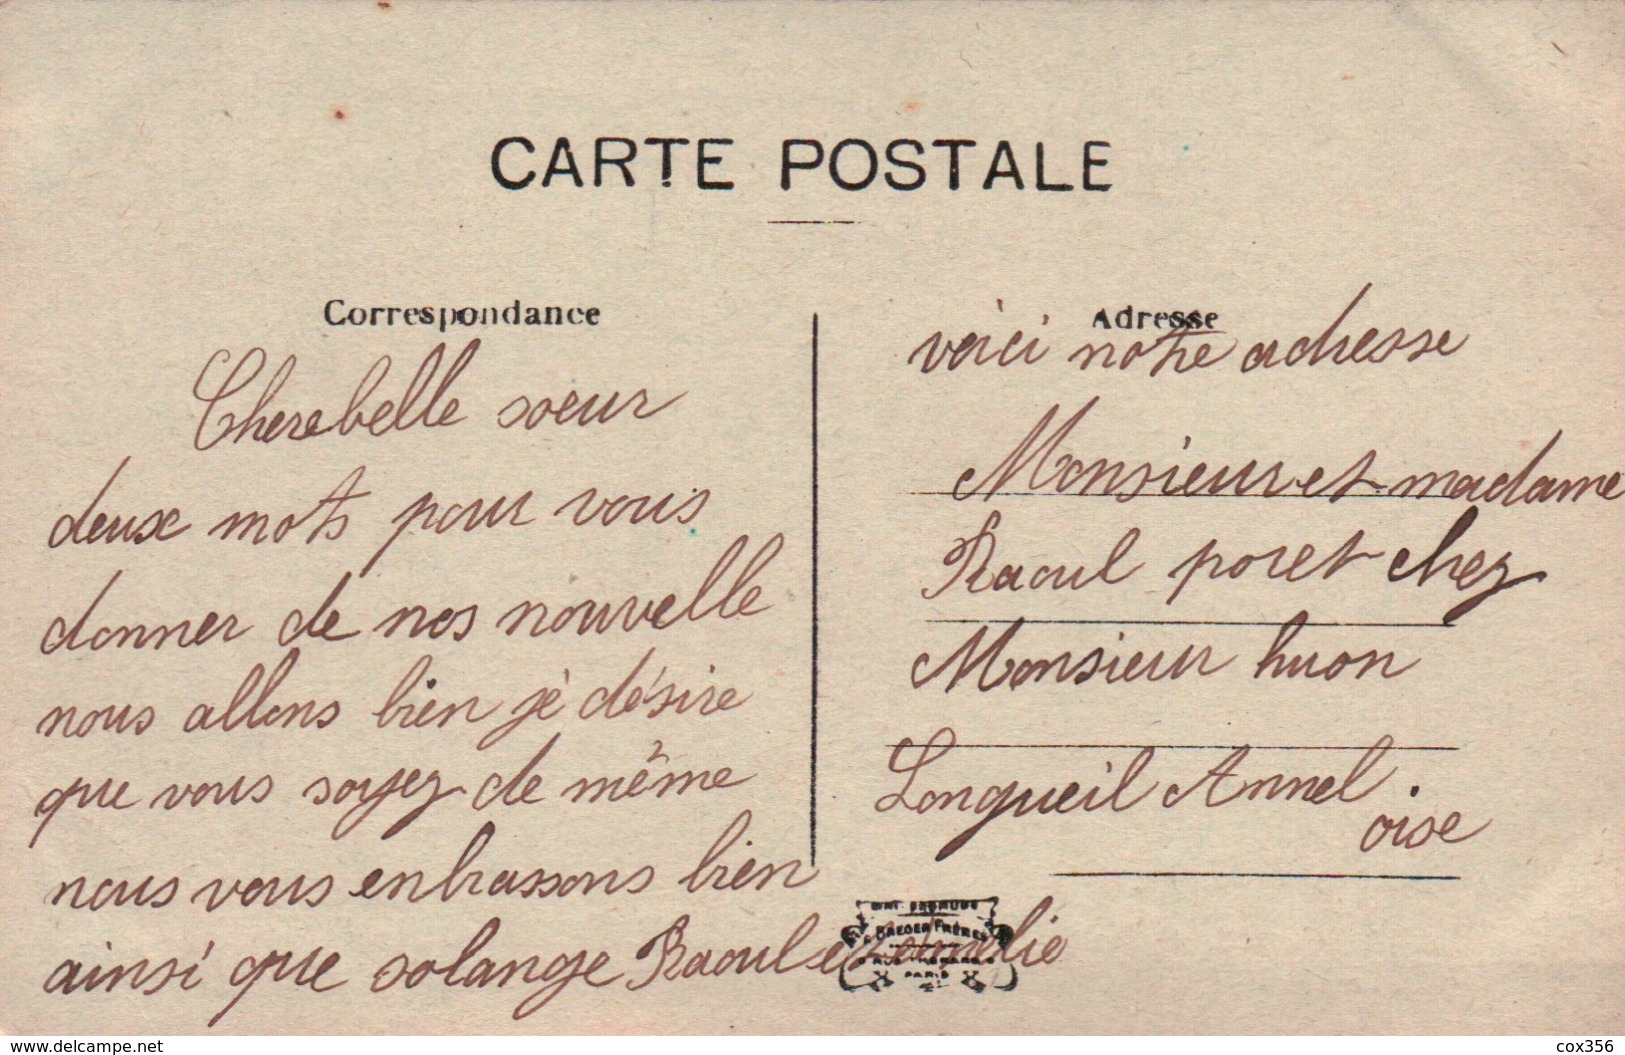 CARTE POSTALE
Correspondance
Chere belle soeur
deux mots pour vous
donner de nos nouvelle
nous allons bien jé désire
que vous soyez de même
nous vous enbrassons bien
ainsi que solange Raoul et amélie
Adresse
voici notre adresse
Monsieur et madame
Raoul poret chez
Monsieur huon
Longueil Annel.
oise
BREGER FRÈRES
PARIS
www.delcampe.net
cox356